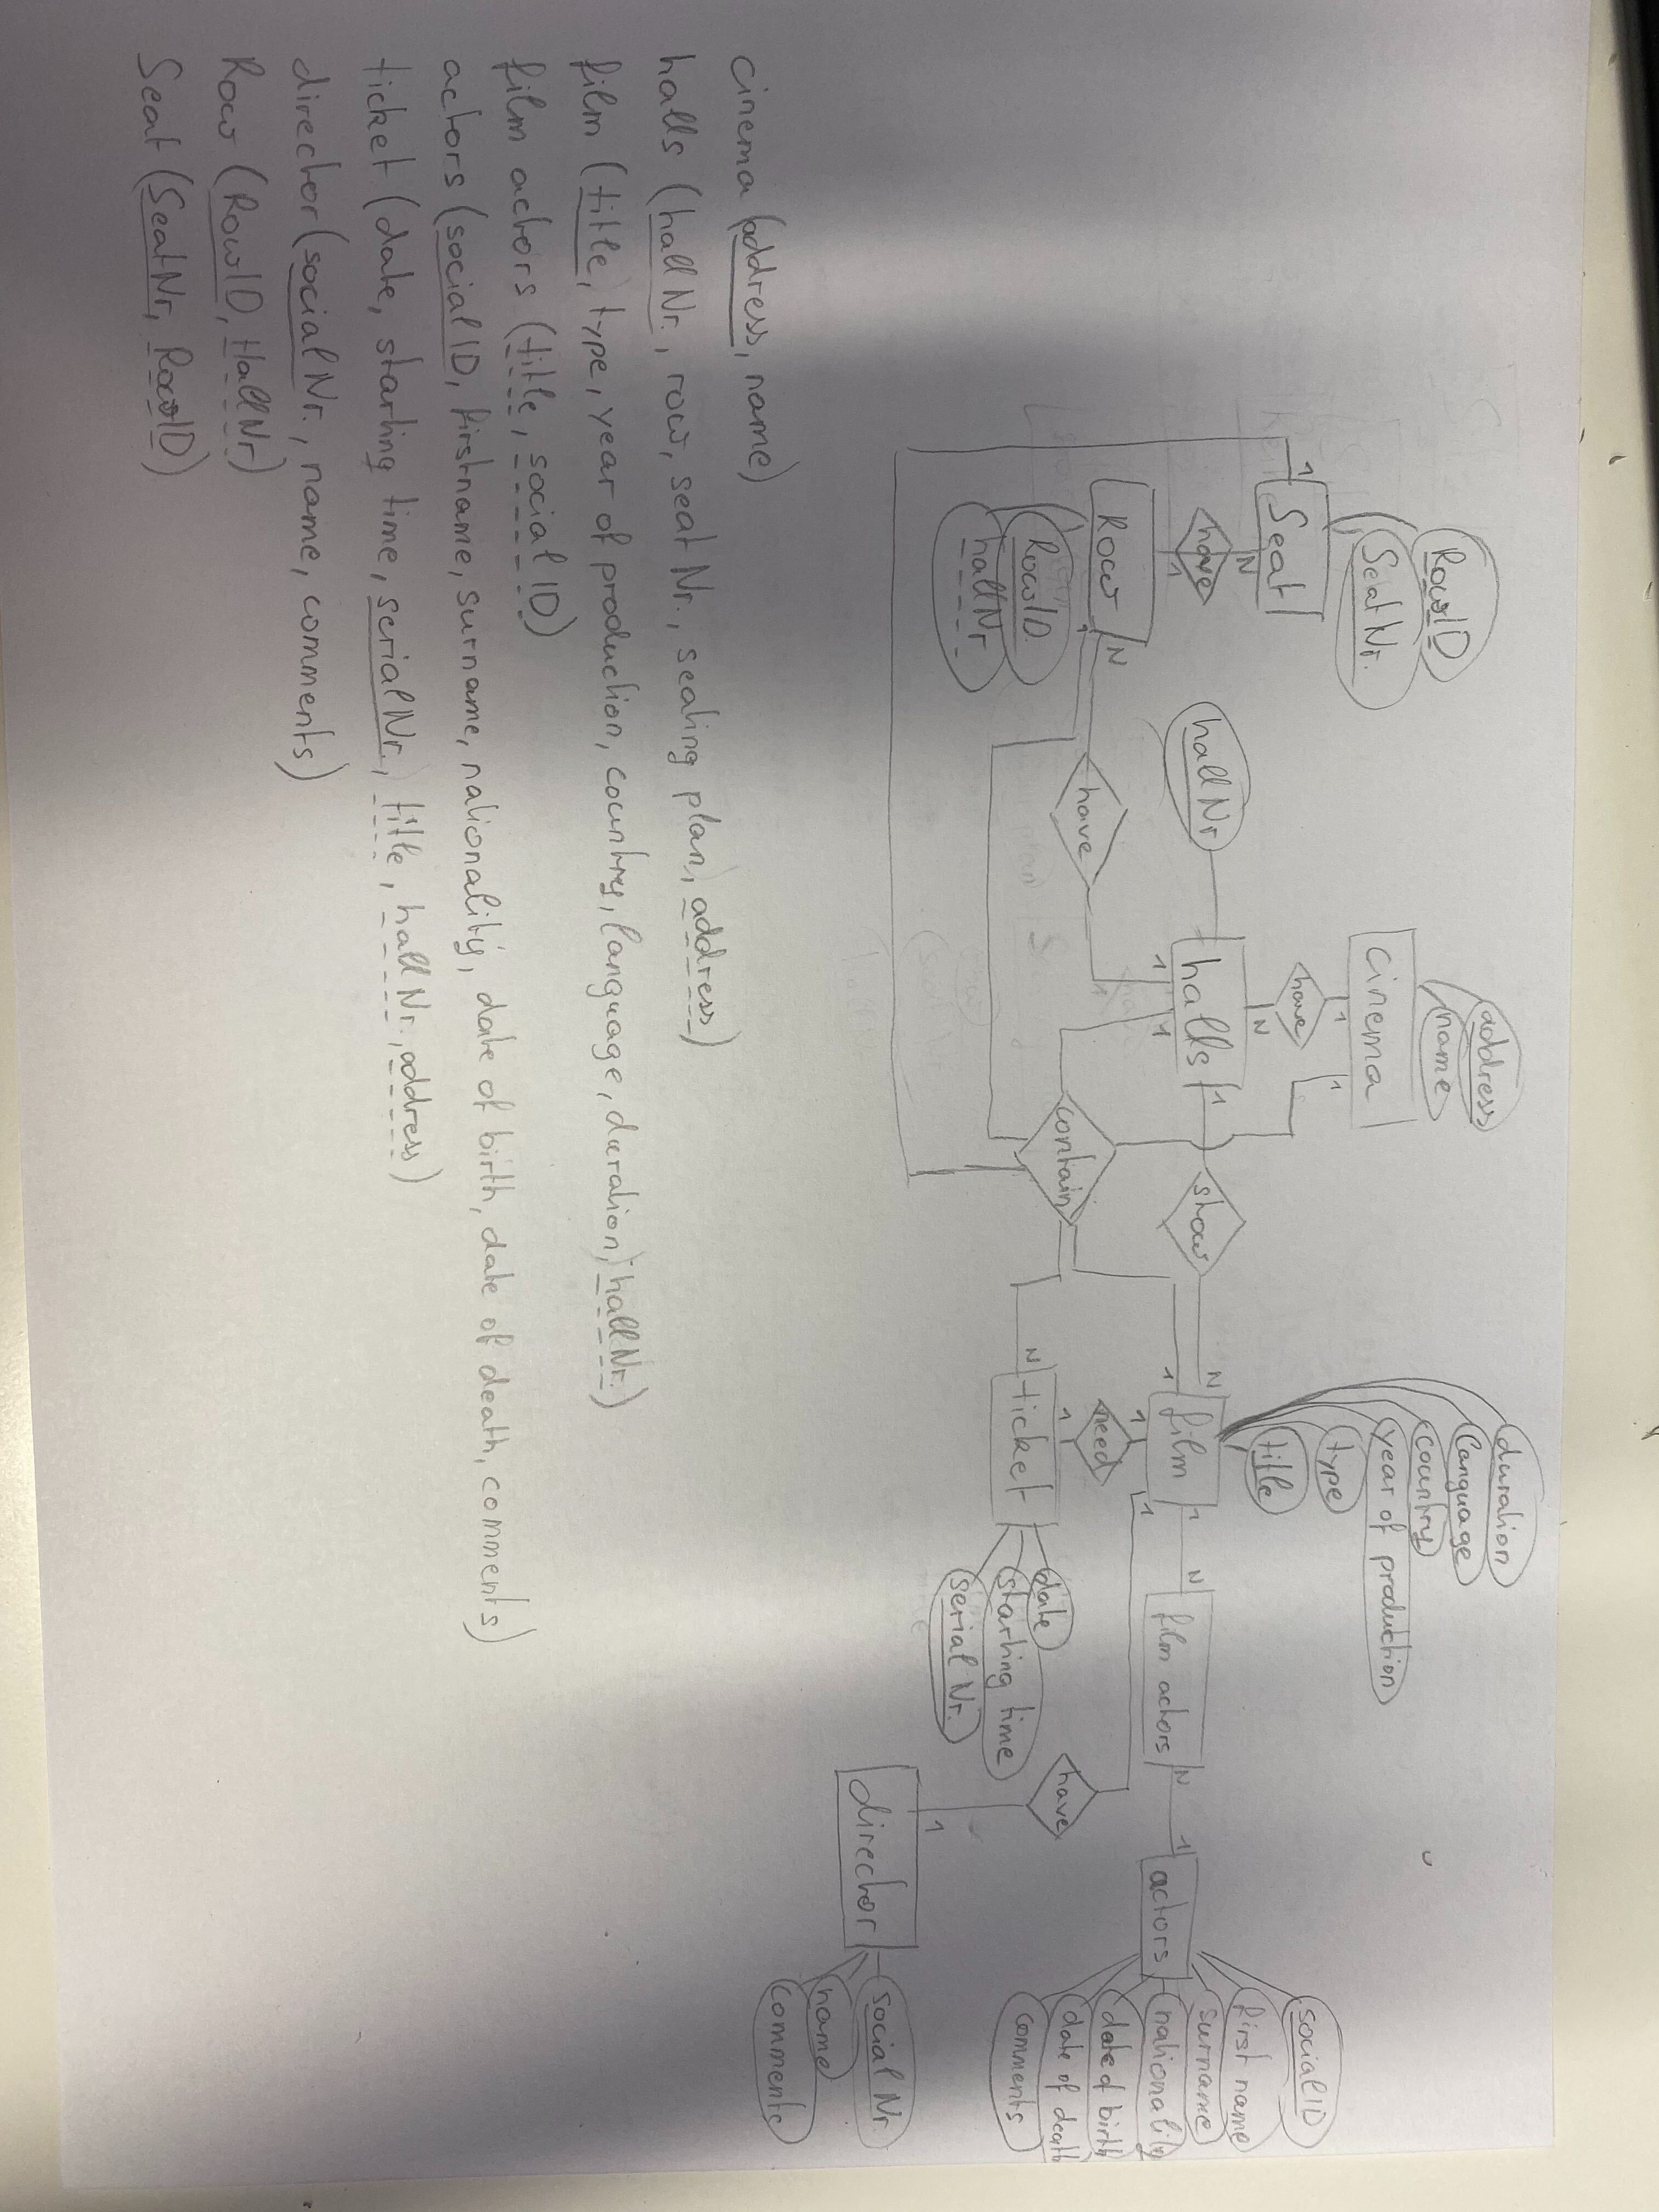 duration
language
country
year of production
type
title
address
name
RowID
SeatNr.
Seat
1
N
have
1
Row
N
1
RowID
hallNr
hallNr
have
cinema
1
1
have
N
halls
1
1
1
show
contain
N
1
film
1
1
1
need
1
N
ticket
date
starting time
serialNr.
N
film actors
N
1
actors
socialID
first name
surname
nationality
date of birth
date of death
comments
have
1
director
socialNr.
name
comments
cinema (address, name)
halls (hallNr., row, seatNr., seating plan, address)
film (title, type, year of production, country, language, duration, hallNr.)
film actors (title, socialID)
actors (socialID, firstname, surname, nationality, date of birth, date of death, comments)
ticket (date, starting time, serialNr., title, hallNr., address)
director (socialNr., name, comments)
Row (RowID, HallNr)
Seat (SeatNr, RowID)